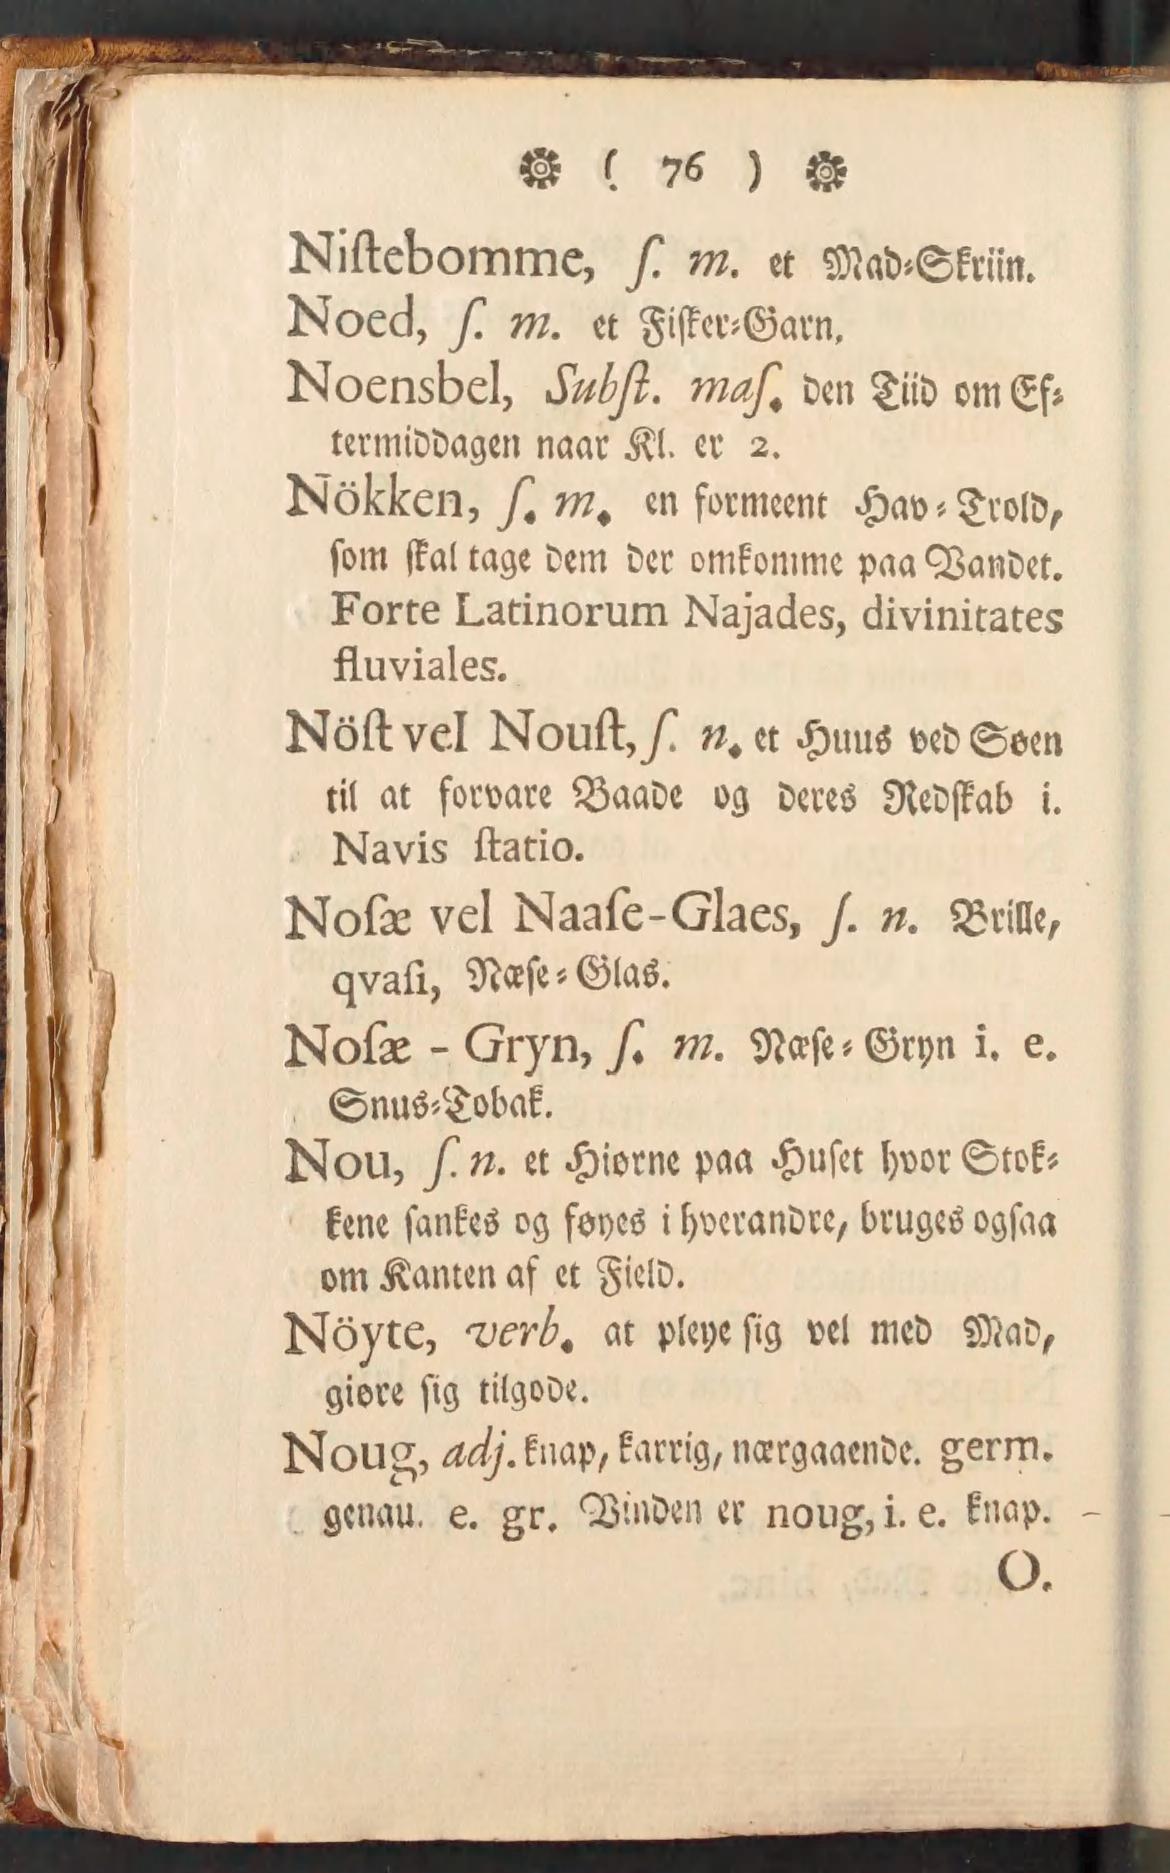 ( 76 )
Niſtebomme, ſ. m. et Mad-Skriin.
Noed, ſ. m. et Fiſker-Garn.
Noensbel, Subſt. maſ. den Tiid om Ef-
termiddagen naar Kl. er 2.
Nökken, ſ. m. en formeent Hav-Trold,
ſom ſkal tage dem der omkomme paa Vandet.
Forte Latinorum Najades, divinitates
fluviales.
Nöſt vel Nouſt, ſ. n. et Huus ved Søen
til at forvare Baade og deres Redſkab i.
Navis ſtatio.
Noſæ vel Naaſe-Glaes, ſ. n. Brille,
qvaſi, Næſe-Glas.
Noſæ - Gryn, ſ. m. Næſe-Gryn i. e.
Snus-Tobak.
Nou, ſ. n. et Hiørne paa Huſet hvor Stok-
kene ſankes og føyes i hverandre, bruges ogſaa
om Kanten af et Field.
Nöyte, verb. at pleye ſig vel med Mad,
giøre ſig tilgode.
Noug, adj. knap, karrig, nærgaaende. germ.
genau. e. gr. Vinden er noug, i. e. knap.
O.